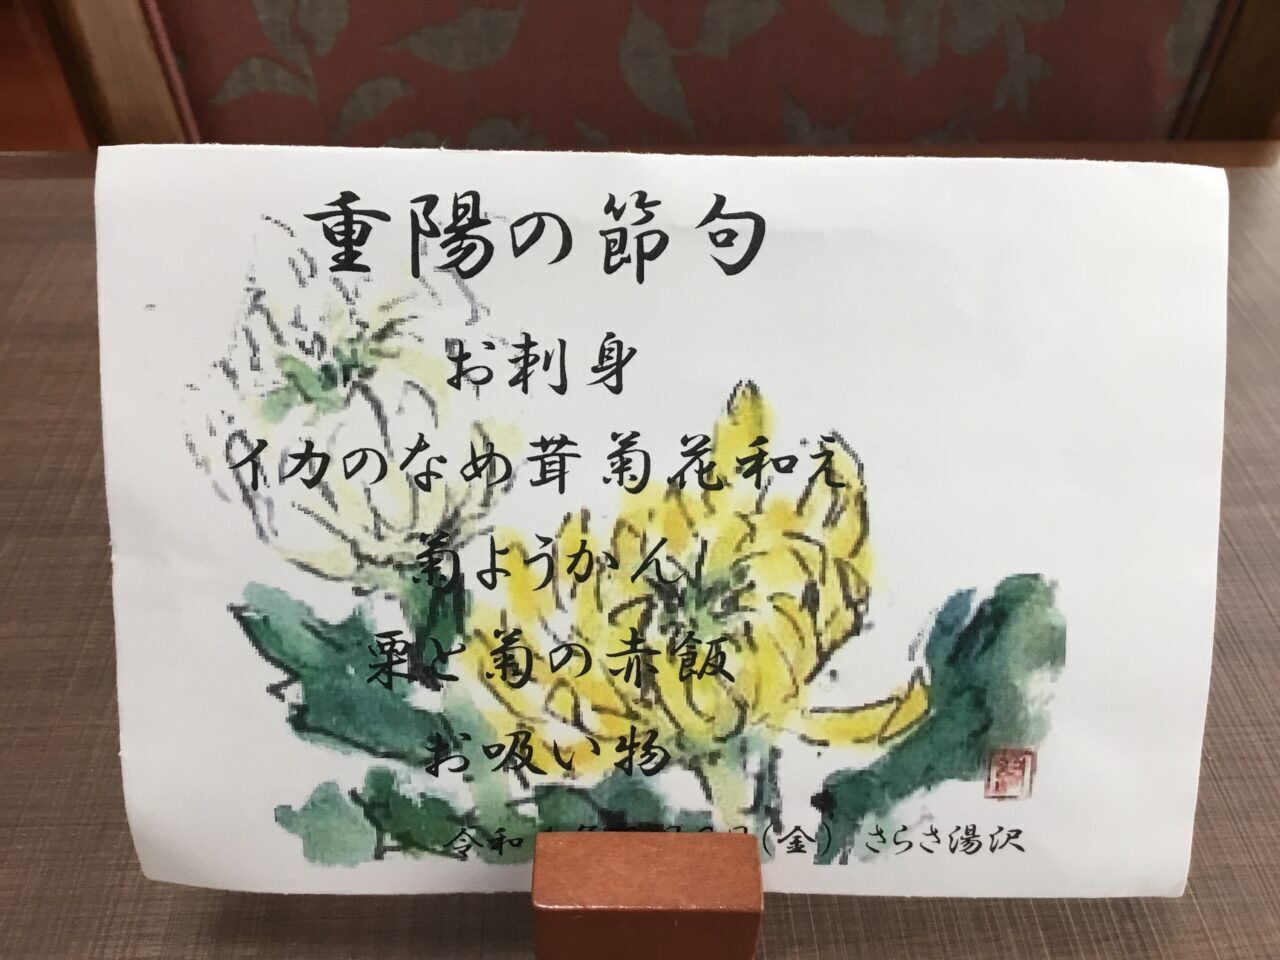 重陽の節句
お刺身
イカのなめ茸菊花和え
菊ようかん
栗と菊の赤飯
お吸い物
令和 (金) さらさ湯沢